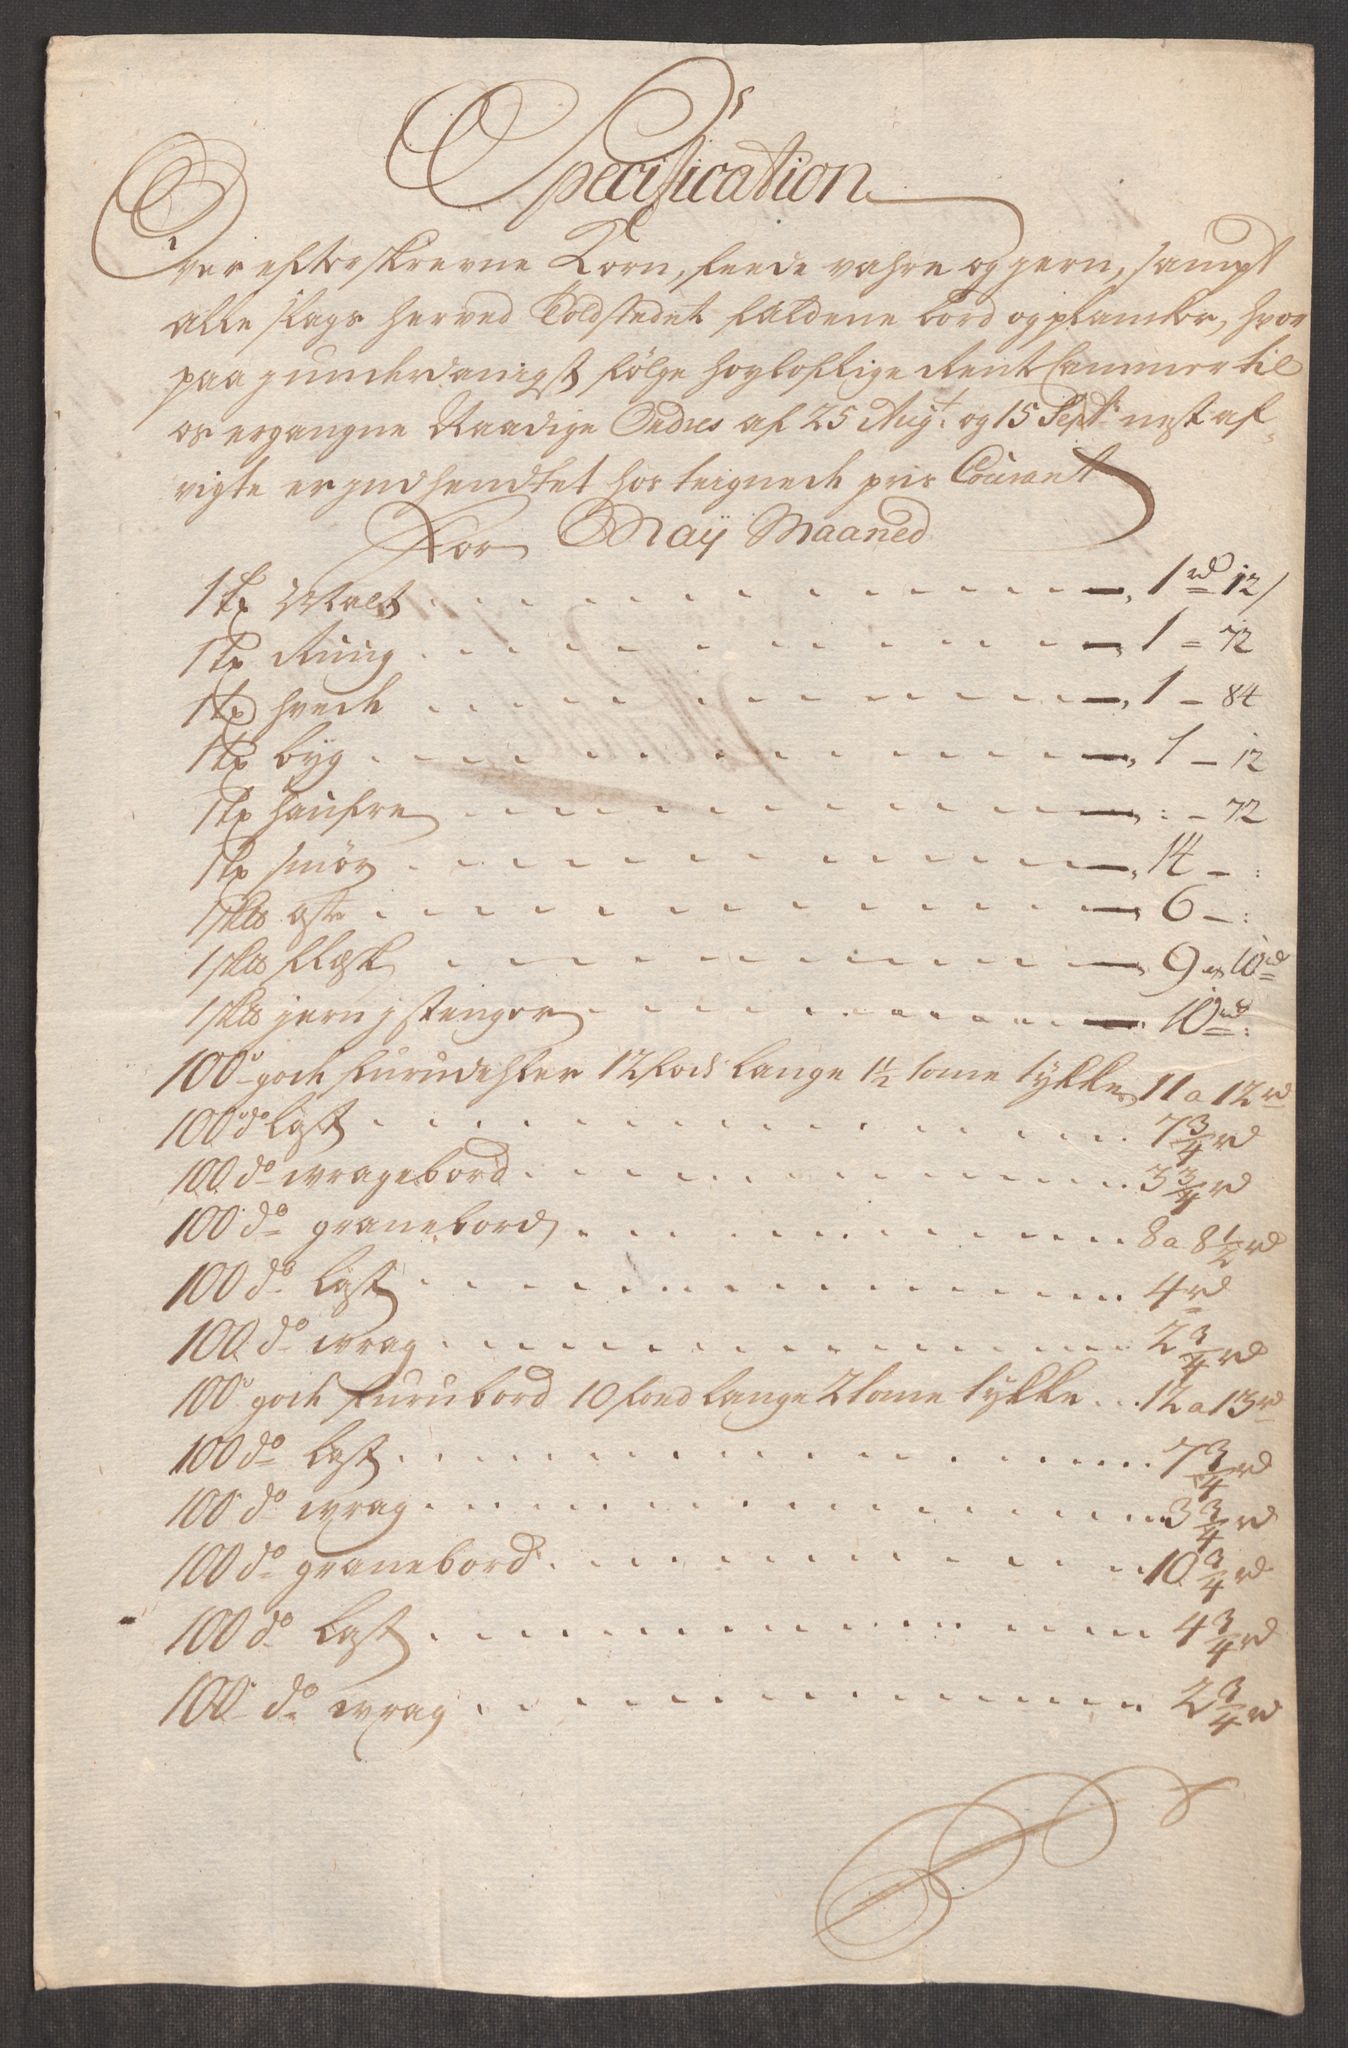 Specification
Over efterskrevne Korn, feede vahre og jern, sampt
alle slags herved Toldstedet faldene bord og planker, hvor
paa j underdanigst følge høyloflige Rent Cammer til
os ergangne Naadige Ordres af 25 Augt. og 15 Septr. nest af-
vigte er jndhendtet hos teignede pris Courant
For Maÿ Maaned
1 tr Malt - 1 rd 12 /
1 tr Rüug - 1 = 72
1 tr hvede - 1 - 84
1 tr bÿg - 1 - 12
1 tr haufre - : - 72
1 tr smör - 14 - :
1 sk℔ ost - 6 - :
1 sk℔ flesk - 9 a 10 rd
1 sk℔ jern j stenger - 10 rd :
100 gode furudehler 12 fods lange 1½ tome tykke 11 a 12 rd
100 do Lest . . . 7¾ rd
100 do wragebord . . . 3¾ rd
100 do granebord . . . 8 a 8½ rd
100 do Lest . . . 4 rd
100 do wrag . . . 2¾ rd
100 gode furubord 10 food lange 2 tome tykke . . . 12 a 13 rd
100 do Lest . . . 7¾ rd
100 do wrag . . . 3¾ rd
100 do granebord . . . 10¾ rd
100 do Lest . . . 4¾ rd
100 do wrag . . . 2¾ rd